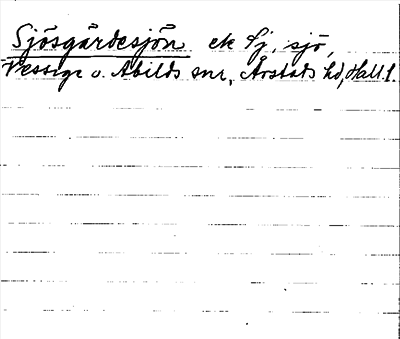 Sjösgärdesjön ek Sj, sjö,
Vessige o. Abilds snr, Årstads hd, Hall. l.